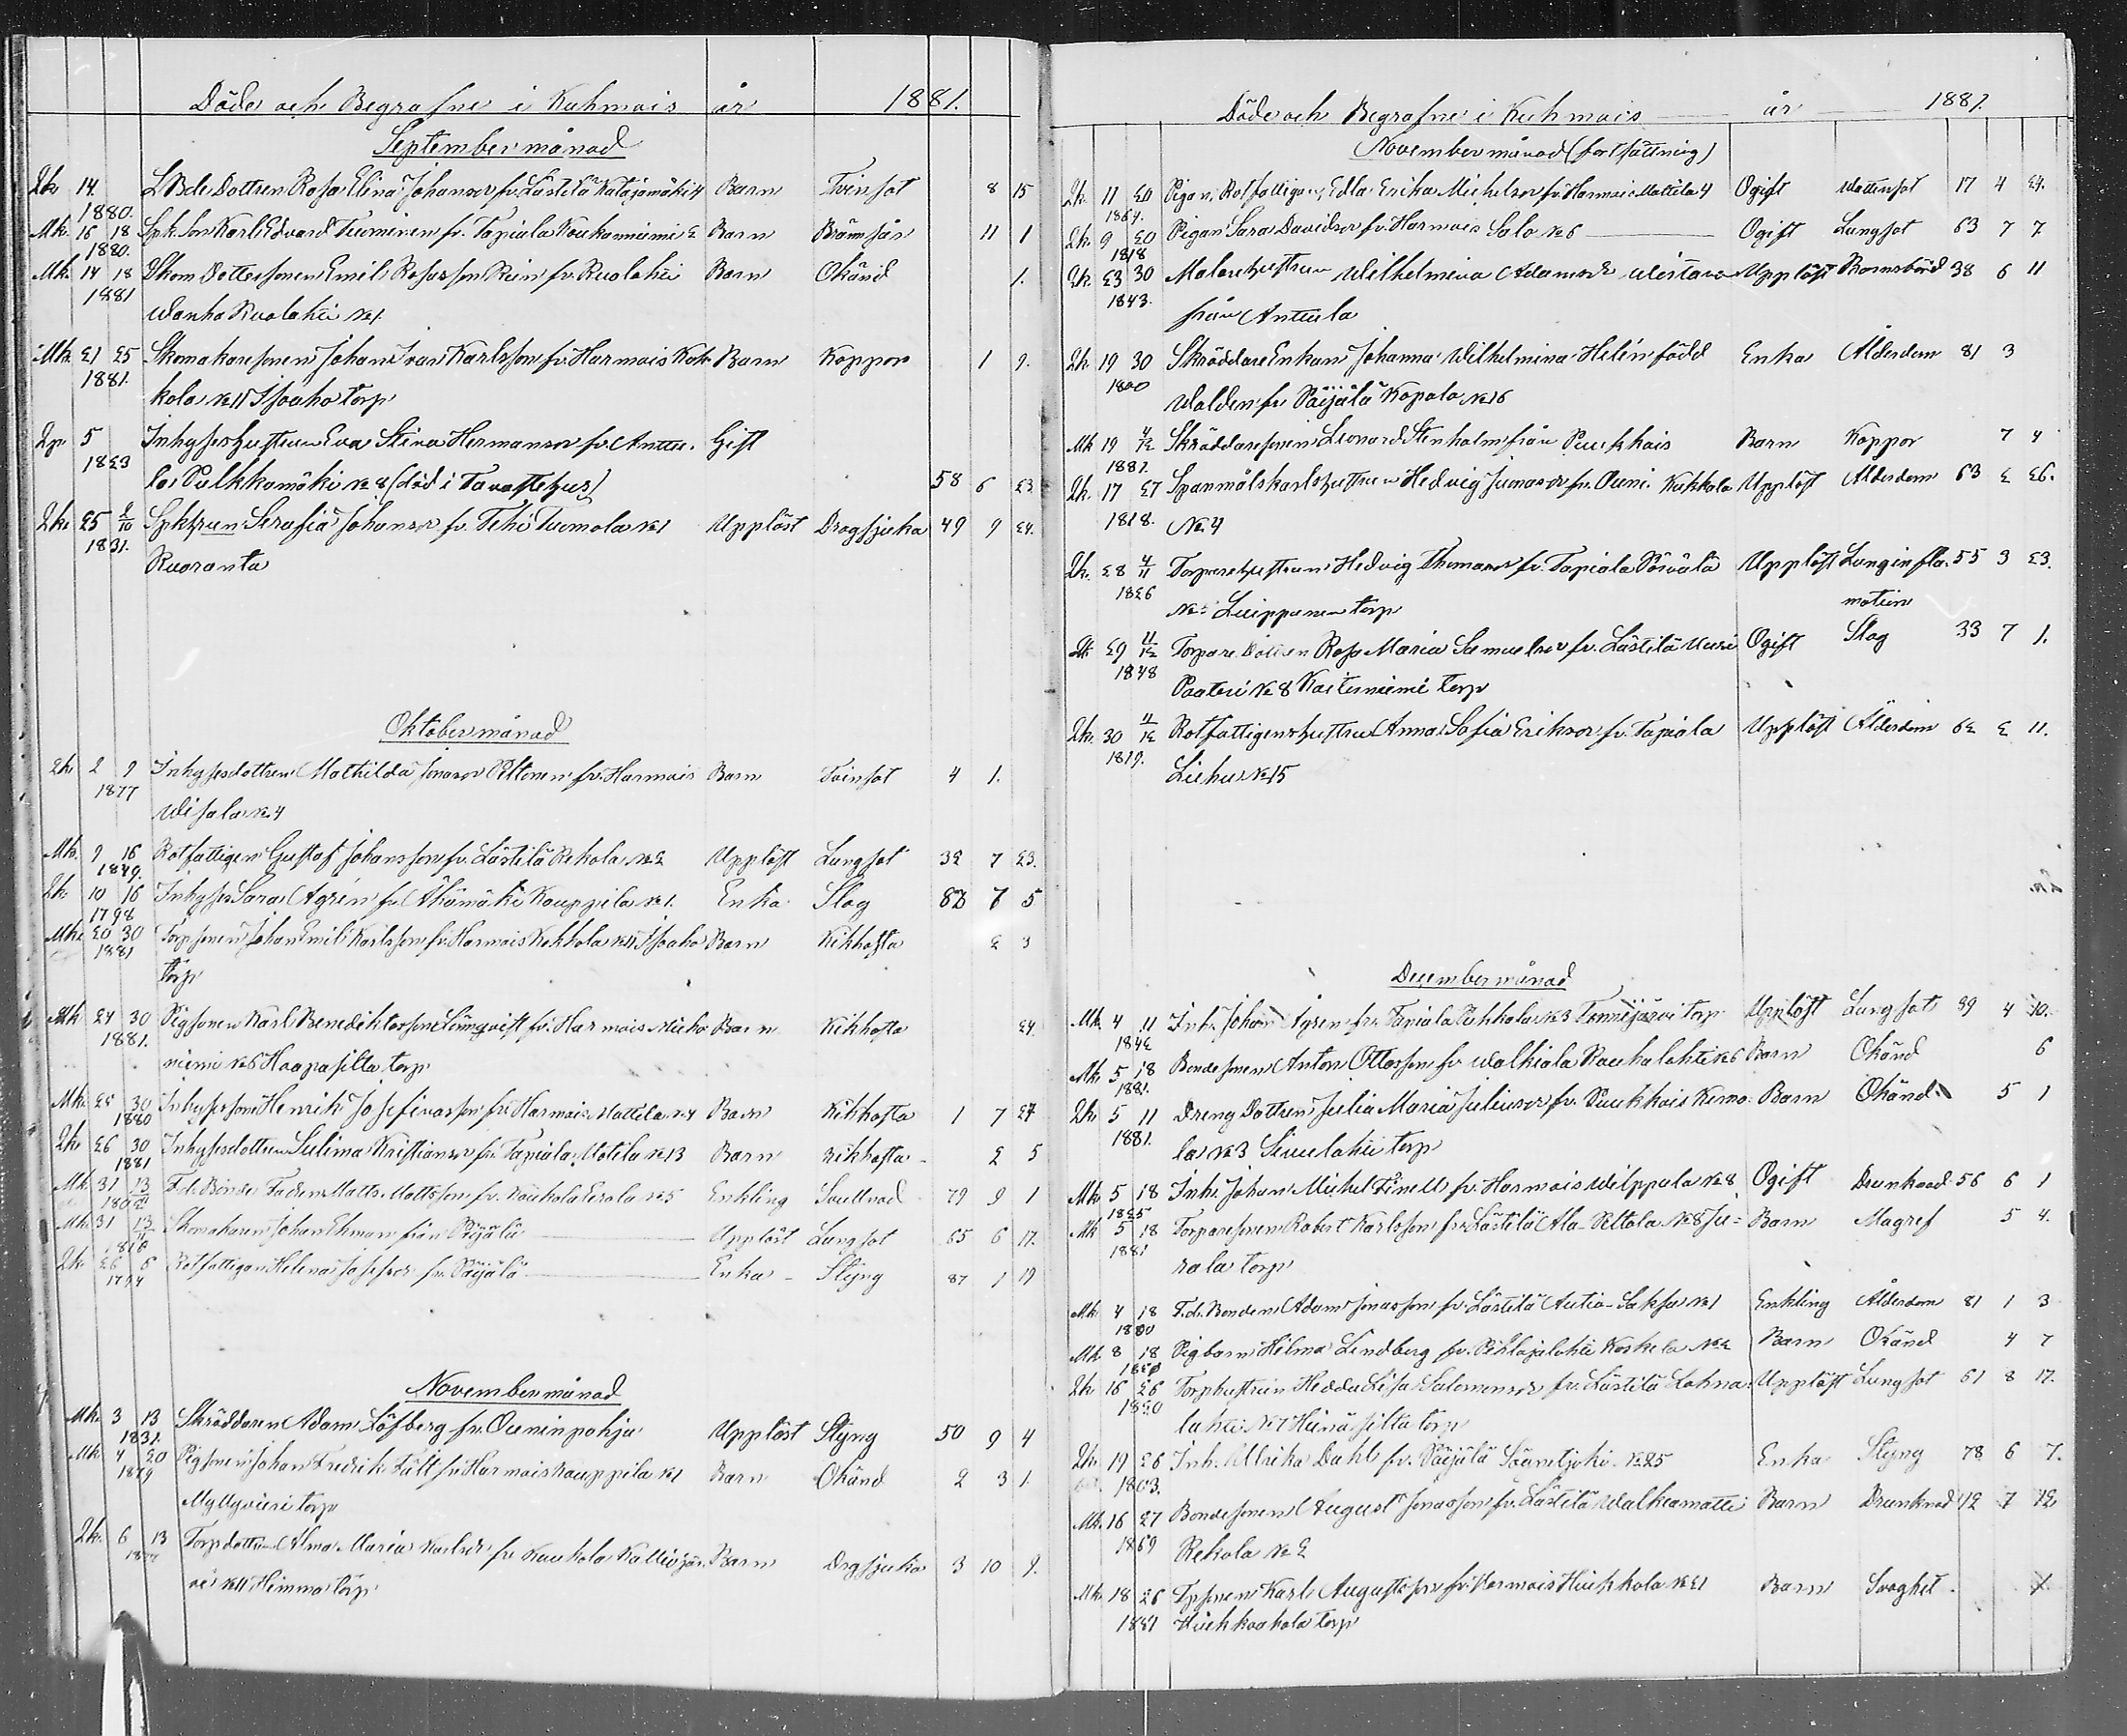 Döde och Begrafne i Kuhmois år 1881.
September månad
Qk 14. L Bde Dottren Rosa Elina Johansdr fr. Lästilä Katajamäki 4 Barn Tvinsot 8 15
1880.
Mk. 16 18 Spk. Son Karl Edvard Tuominen fr. Tapiala Koukunniemi 2 Barn Bännsår 11 1
1880.
Mk. 14 18 Skom Dottersonen Emil Rosasson Rein fr. Ruolahti Barn Okänd 1.
1881 Wanha Ruolahti № 1.
Mk 21 25 Skomakaresonen Johan Ivar Karlsson fr. Harmois Kok- Barn Koppor 1 9.
1881. kola № 11 Isoaho torp
Qp 5 Inhyseshustrun Eva Stina Hermansdr fr. Anttu- Gift
1823 la Pulkkamäki № 8 (död i Tavastehus) 58 6 23
Qk. 25 2/10 Spkhrun Serafia Johansdr fr. Tehi Tuomola № 1 Upplöst Dragsjuka 49 9 24.
1831. Ruoranta
Oktober månad
Qk 2 9 Inhysesdottren Mathilda Jonasdr Peltonen fr. Harmois Barn Tvinsot 4 1.
1877 Wisala № 4
Mk. 9 16 Rotfattigen Gustaf Johansson fr. Lästilä Rekola № 2 Upplöst Lungsot 32 7 23.
1849.
Qk. 10 16 Inhyses Sara Agrén fr. Åkämäki Kauppila № 1. Enka Slag 83 7 5
1798
Mk. 20 30 Torpsonen Johan Emil Karlsson fr. Harmois Kokkola № 11 Isoaho Barn Kikhosta 2 3
1881 torp
Mk 24 30 Pigsonen Karl Benediktsson Lönnqvist fr. Harmois Mieho Barn Kikhosta 24.
1881. niemi № 6 Haapasilta torp
Mk. 25 30 Inhysesson Henrik Josefinasson fr. Harmois Mattila № 4 Barn Kikhosta 1 7 27
1880
Qk. 26 30 Inhysesdottren Sulima Kristiansdr fr. Tapiala Uotila № 13 Barn Kikhosta 2 5
1881
Mk. 31 13 F.d. Bonde Fadern Matts Mattsson fr. Kaukola Erola № 5 Enkling 79 9 1
1802
Mk. 31 13/11 Skomakaren Johan Ekman från Päijälä Upplöst Lungsot 65 6 17.
1816
Qk. 26 6 Rotfattigan Helena Josefsdr fr. Päijälä Enka Styng 87 1 19
1794
November månad
Mk. 3 13 Skräddaren Adam Löfberg fr. Ouninpohja Upplöst Styng 50 9 4
1831.
Mk 4 20 Pigsonen Johan Fredrik Fält fr. Harmois Kauppila № 1 Barn Okänd 2 3 1.
1879 Myllyvuori torp
Qk. 6 13 Torpdottren Alma Maria Karlsdr fr. Kaukola Kalliojär- Barn Dragsjuka 3 10 9.
1877 vi № 11 Himma torp
Döde och Begrafne i Kuhmois år 1881.
November månad (fortsättning)
Qk. 11 20 Pigan, Rotfattigan, Edla Erika Michelsdr fr. Harmois Mattila 4 Ogift Wattensot 17 4 24.
1864.
Qk. 9 20 Pigan Sara Davidsdr fr. Harmois Salo № 6 Ogift Lungsot 63 7 7
1818
Qk. 23 30 Malarehustrun Wilhelmina Adamsdr Upplöst Barnsbörd 38 6 11
1843. från Anttula
Qk. 19 30 Skräddare Enkan Johanna Wilhelmina Helén född Enka Ålderdom 81 3
1800 Walden fr. Päijälä Kopola № 16
Mk 19 4/12 Skräddaresonen Leonard Stenholm från Puukkois Barn Koppor 7 4
1881.
Qk. 17 27 Spanmålskarlshustrun Hedvig Simonsdr fr. Ouni. Kukkola Upplöst Ålderdom 63 2 26.
1818. № 4
Qk. 28 4/11 Torparehustrun Hedvig Thomasdr fr. Tapiala Päivälä Upplöst Lunginfla- 55 3 23.
1826 №: Luippunen torp mation
Qk. 29 11/12 Torpare Dottren Rosa Maria Samuelsdr fr. Lästilä Uusi Ogift Slag 33 7 1.
1848 Paateri № 8 Kaiterniemi torp
Qk. 30 11/12 Rotfattigenshustru Anna Sofia Eriksdr fr. Tapiala Upplöst Ålderdom 62 2 11.
1819. Liehu № 15
December månad
Mk. 4 11 Inh. Johan Agren fr. Tapiala Pukkola № 3 torp Upplöst Lungsot 39 4 10.
1842
Mk. 5 18 Bondesonen Anton Ottosson fr. Walkiala Raukalahti № 6 Barn Okänd 6
1881.
Qk. 5 11 Dreng Dottren Julia Maria Juliusdr fr. Puukkois Kemo- Barn Okänd 5 1
1881. la № 3 Sivulahti torp
Mk. 5 18 Inh. Johan Michel Finell fr. Harmois Wilppula № 8 Ogift Drunknad 56 6 1
1825
Mk 5 18 Torparesonen Robert Karlsson fr. Lästilä Ala-Peltola № 8 Ju- Barn Magref 5 4.
1881 rala torp
Mk 4 18 F.d. Bonden Adam Jonasson fr. Lästilä Autio-Saksa № 1 Enkling Ålderdom 81 1 3
1800
Mk 8 18 Pigbarn Hilma Lindberg fr. Pihlajalahti Koskela № 2 Barn Okänd 4 7
Qk 16 26 Torphustrun Hedda Lisa Salomonsdr fr. Lästilä Lahna- Upplöst Lungsot 61 8 17.
1820 lahti № 7 Heinäsilta torp
Qk. 19 26 Inh. Ulrika Dahl fr. Päijälä Säynätjoki № 25 Enka Styng 78 6 7.
1803.
Mk. 16 27 Bondesonen August Jonasson fr. Lästilä Walkeamatti Barn Drunknad 12 7 12
1869 Rekola № 2
Mk. 18 26 Tpsonen Karl Augustsson fr. Harmois Huhkola № 21 Barn Svaghet
1881 torp